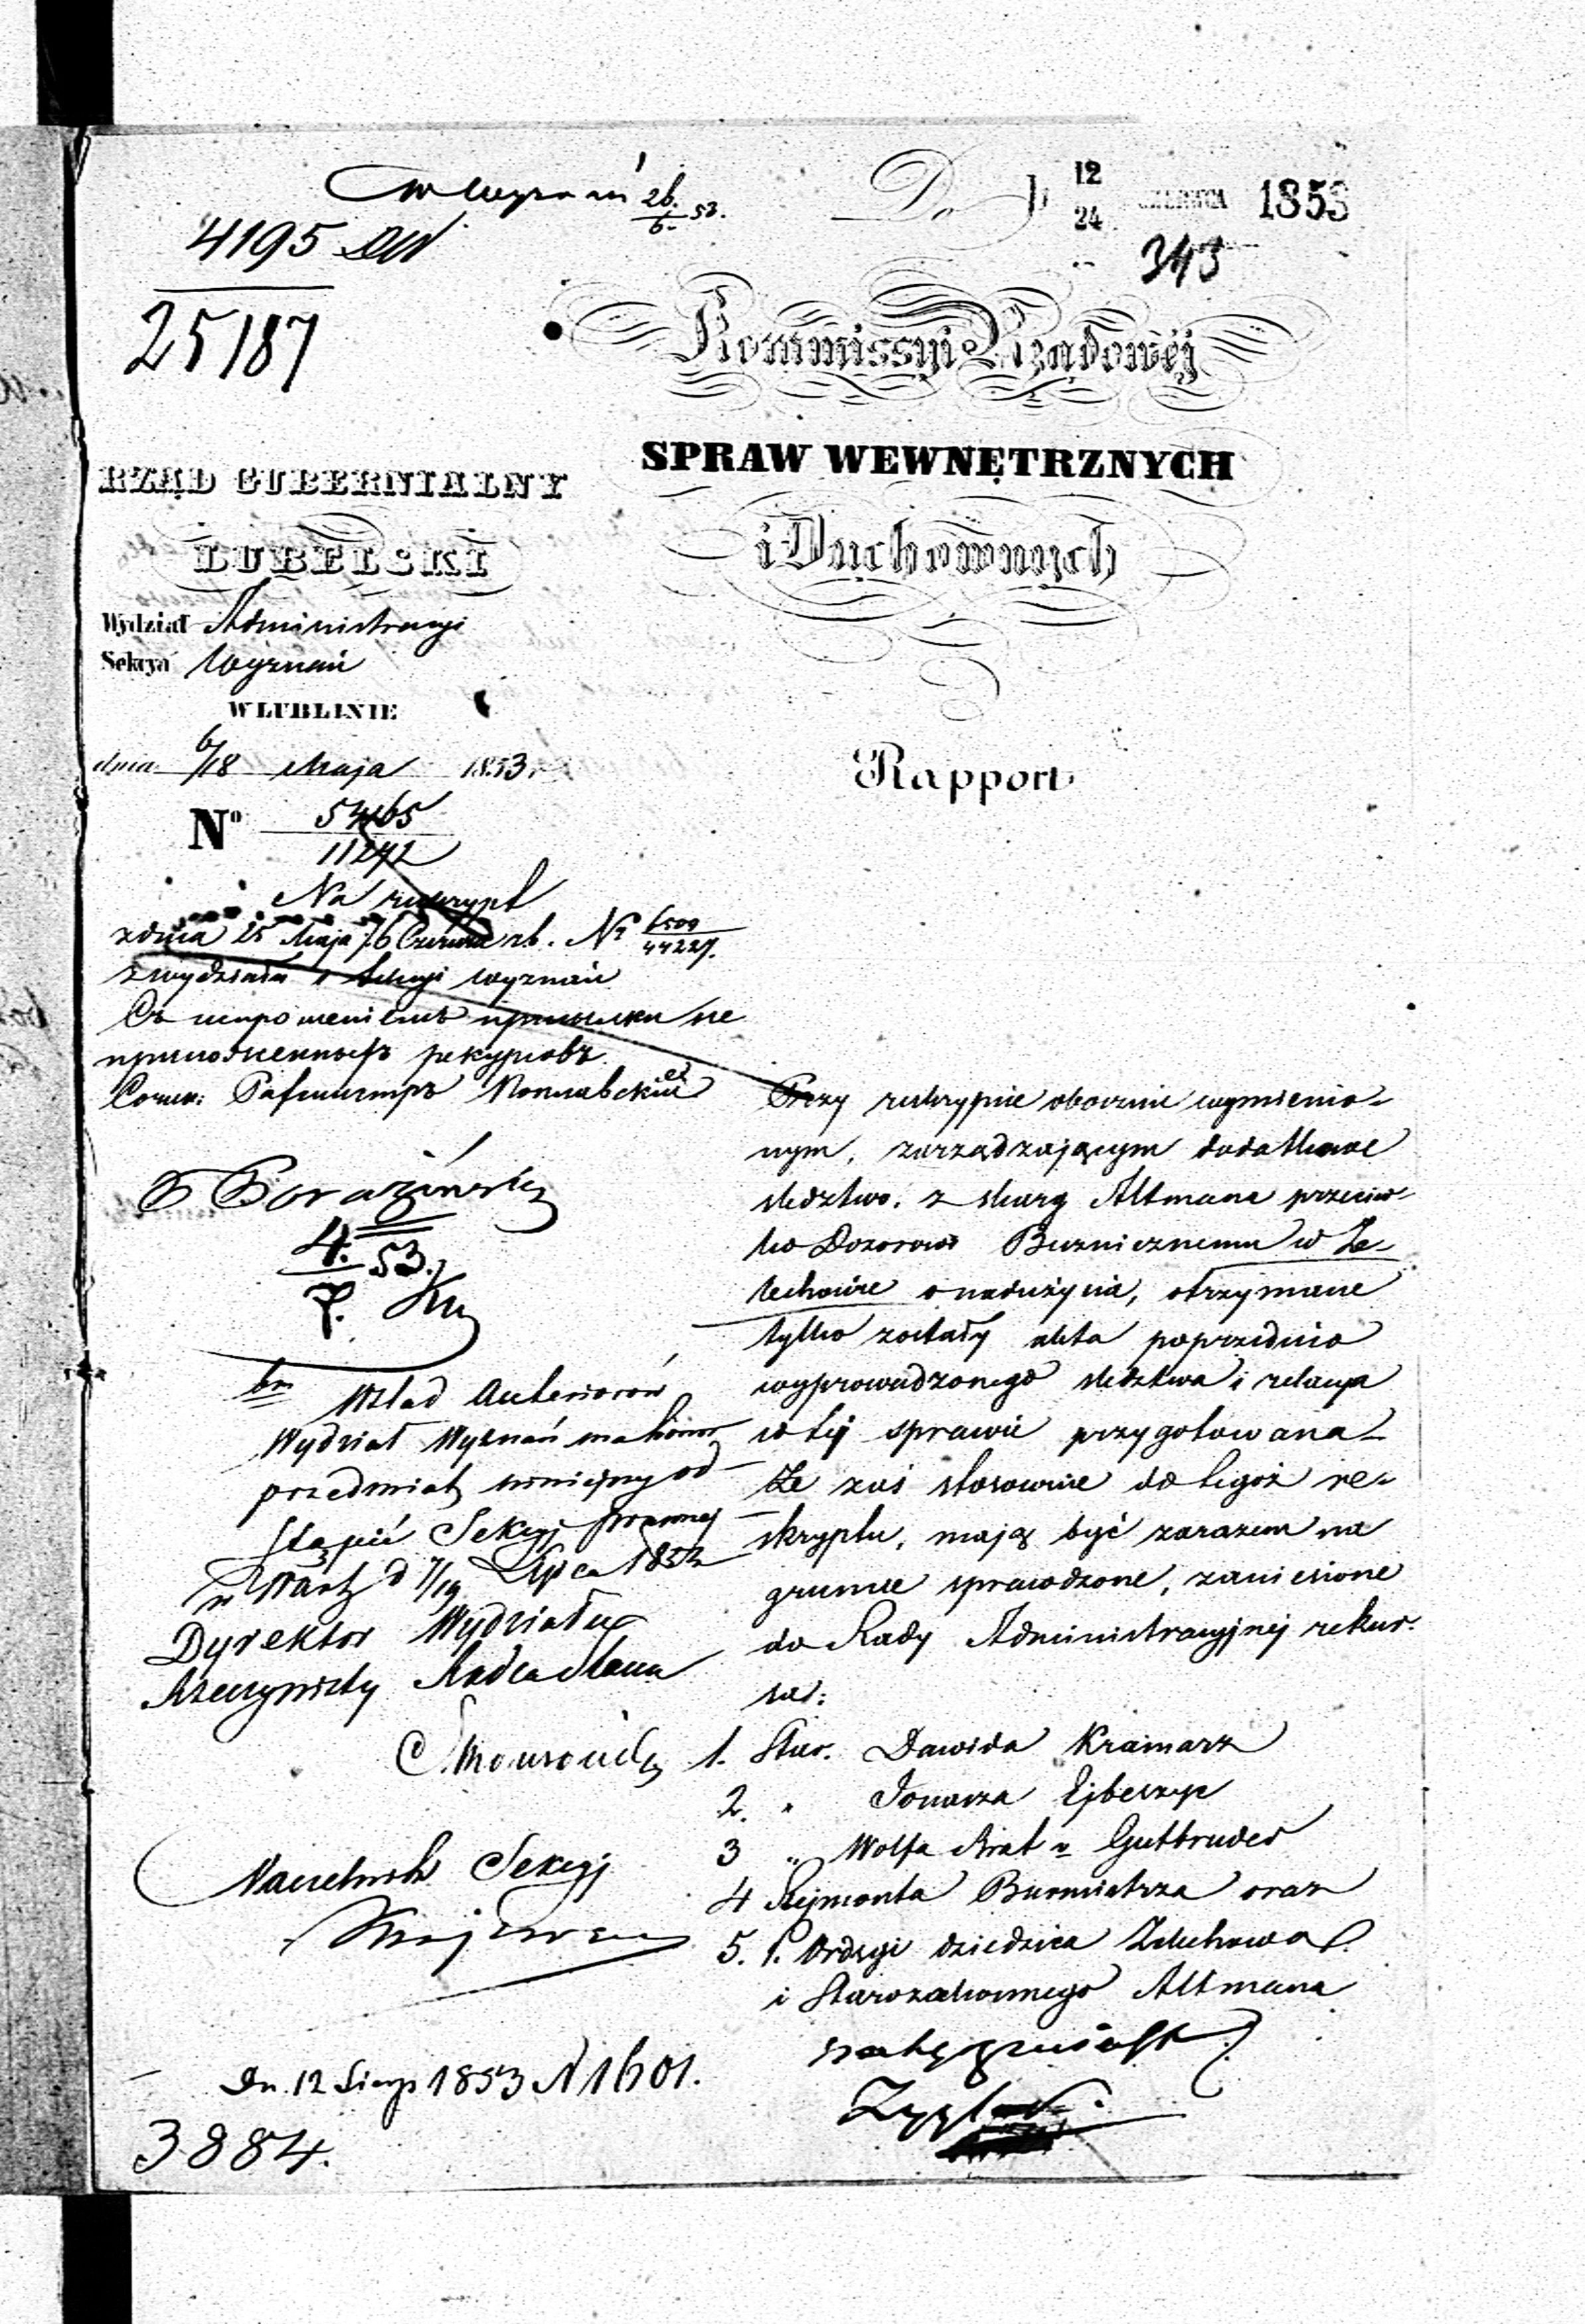 w Wyznań 26/6 53.
4195 DW
25187
Do
12
24
CZERWCA 1853
343
Kommissyi Rządowéj
SPRAW WEWNĘTRZNYCH
i Duchownych
RZĄD GUBERNIALNY
LUBELSKI
Wydział Administracyi
Sekcya Wyznań
W LUBLINIE
dnia 6/18 Maja 1853 r.
Rapport
Nº 54165
11242
Na reskrypt
z dnia 25 Maja /6 Czerwca rb. Nr 6509/44227.
z wydziału i sekcyi wyznań
Przy reskrypcie obocznie wymienio-
nym, zarządzającym dodatkowe
śledztwo, z skarg Altmana przeciw-
ko Dozorowi Bużnicznemu w Że-
lechowie o nadużycia, otrzymane
tylko zostały akta poprzednio
wyprowadzonego śledztwa i relacya
w téj sprawie przygotowana
Że zaś stosownie do tegoż re-
skryptu, mają być zarazem na
gruncie sprawdzone, zaniesione
do Rady Administracyjnéj rekur-
sa:
1. Star. Dawida Kramarz
2. " Jonasza Ejbeszyc
3 " Wolfa Brat v Gutbruder
4 Rejmonta Burmistrza oraz
5. P. Ordęgi dziedzica Żelechowa
i Starozakonnego Altmana
4./7. 53.
Wydział Wyznań ma honor
przedmiot niniejszy od-
stąpić Sekcyi Prawnej
d 7/19 Lipca 1853
Dyrektor Wydziału
Rzeczywisty Radca Stanu
Naczelnik Sekcyj
Dn. 12 Sierp 1853 N 1601.
3884.